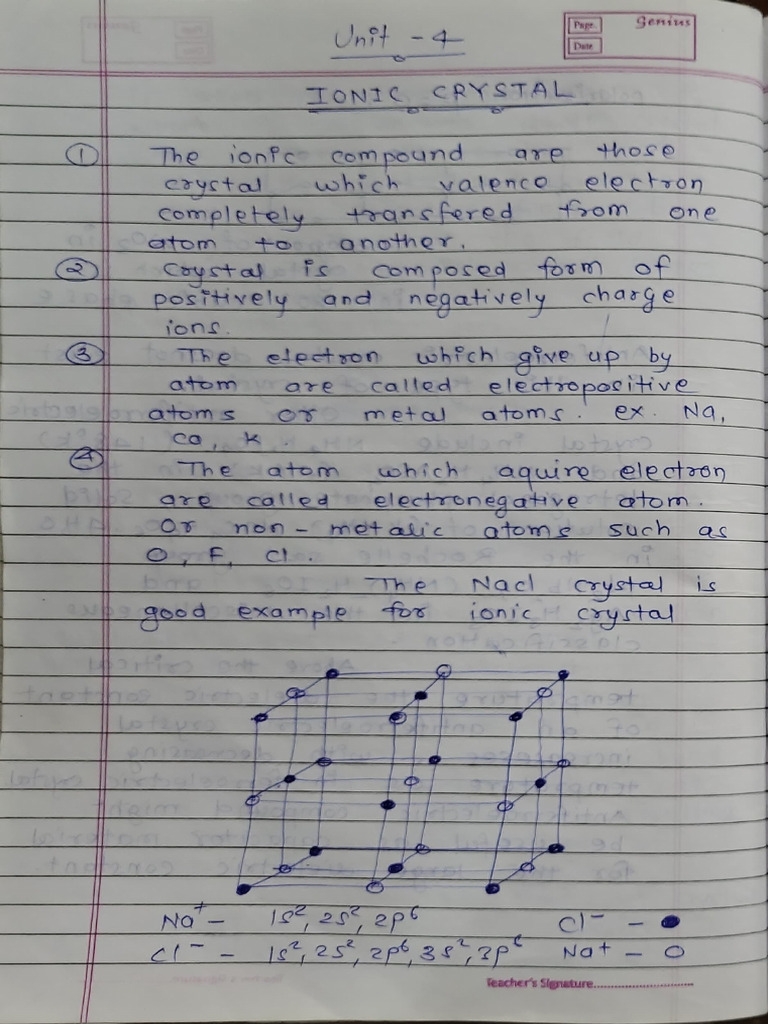 Unit - 4
Page
Date
Genius
IONIC CRYSTAL
① The ionic compound are those
crystal which valence electron
completely transfered from one
atom to another.
② Crystal is composed form of
positively and negatively charge
ions.
③ The electron which give up by
atom are called electropositive
atoms or metal atoms. ex. Na,
Ca, K
④ The atom which aquire electron
are called electronegative atom.
Or non-metalic atoms such as
O, F, Cl.
The Nacl crystal is
good example for ionic crystal
Na⁺ – 1s², 2s², 2p⁶ Cl⁻ – ●
Cl⁻ – 1s², 2s², 2p⁶, 3s², 3p⁶ Na⁺ – ○
Teacher's Signature